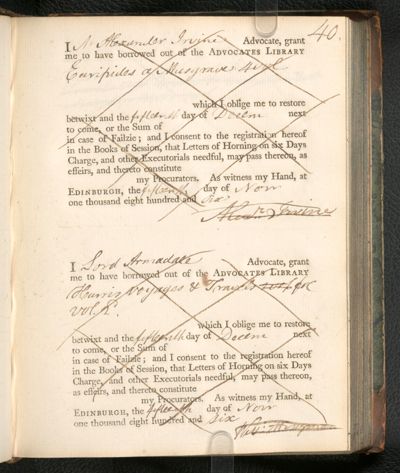 40.
I Mr Alexander Irvine Advocate, grant
me to have borrowed out of the ADVOCATES LIBRARY
Euripides a Musgrave 4 vol
which I oblige me to restore
betwixt and the fifteenth day of Decem next
to come, or the Sum of
in case of Failzie; and I consent to the registration hereof
in the Books of Session, that Letters of Horning on six Days
Charge, and other Executorials needful, may pass thereon, as
effeirs, and thereto constitute
my Procurators. As witness my Hand, at
EDINBURGH, the fifteenth day of Nov
one thousand eight hundred and Six
Alexr Irvine
I Lord Armadale Advocate, grant
me to have borrowed out of the ADVOCATES LIBRARY
Harris Voyages & Travels
vol
which I oblige me to restore
betwixt and the fifteenth day of Decem next
to come, or the Sum of
in case of Failzie; and I consent to the registration hereof
in the Books of Session, that Letters of Horning on six Days
Charge, and other Executorials needful, may pass thereon,
as effeirs, and thereto constitute
my Procurators. As witness my Hand, at
EDINBURGH, the fifteenth day of Nov
one thousand eight hundred and Six